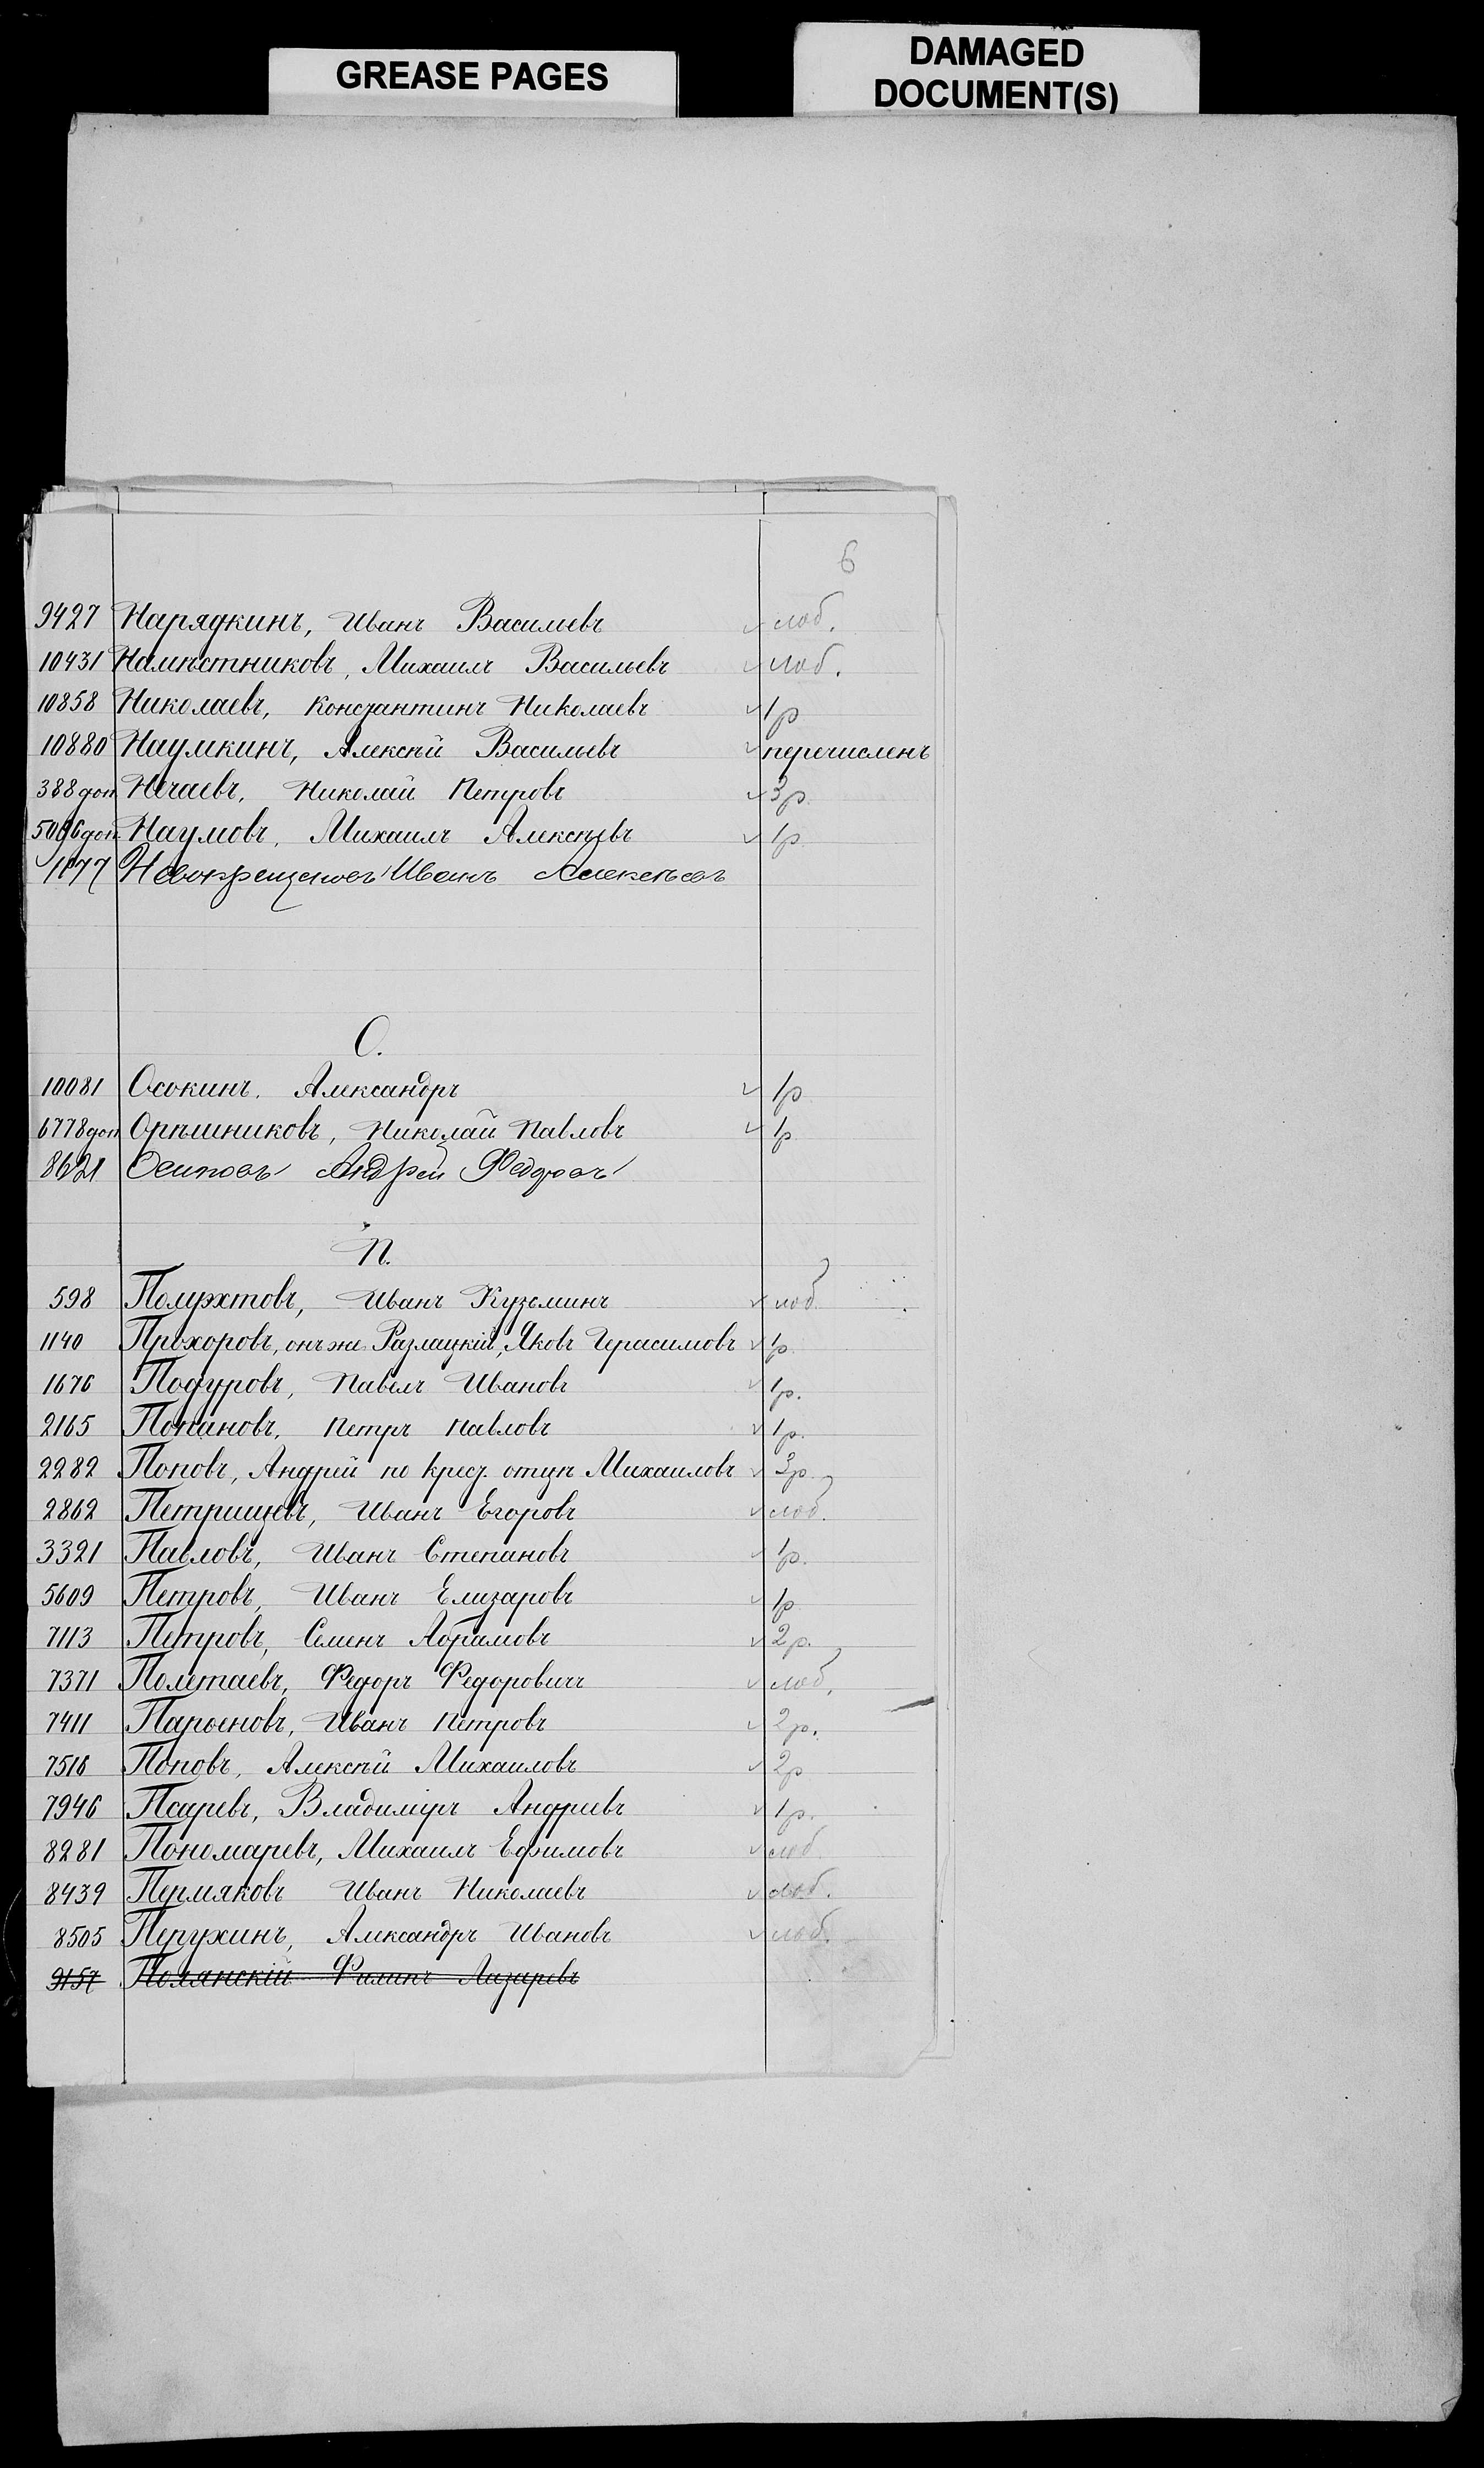 GREASE PAGES
DAMAGED
DOCUMENT(S)
6
9427 Нарядкинъ, Иванъ Васильевъ лоб.
10431 Намѣстниковъ, Михаилъ Васильевъ лоб.
10858 Николаевъ, Константинъ Николаевъ 1р
10880 Наумкинъ, Алексѣй Васильевъ перечисленъ
388 доп Нечаевъ, Николай Петровъ 3р
5066 доп Наумовъ, Михаилъ Алексѣевъ 1р
1077 Новокрещеновъ Иванъ Алексѣевъ
О.
10081 Осокинъ. Александръ 1р
6778 доп Орѣшниковъ, Николай Павловъ 1р
8621 Осиповъ Андрей Федоровъ
П.
598 Полуэхтовъ, Иванъ Кузьминъ лоб
1140 Прохоровъ, онъ же Разлацкій, Яковъ Герасимовъ 1р.
1676 Подуровъ, Павелъ Ивановъ 1р.
2165 Попановъ, Петръ Павловъ 1р.
2282 Поповъ, Андрей по крест. отцу Михаиловъ 3р.
2862 Петрищевъ, Иванъ Егоровъ лоб.
3321 Павловъ, Иванъ Степановъ 1р.
5609 Петровъ, Иванъ Елизаровъ 1р
7113 Петровъ, Семенъ Абрамовъ 2р.
7371 Полетаевъ, Федоръ Федоровичъ лоб.
7411 Парѳеновъ, Иванъ Петровъ 2р.
7516 Поповъ, Алексѣй Михаиловъ 2р
7946 Псаревъ, Владиміръ Андреевъ 1р.
8281 Пономаревъ, Михаилъ Ефимовъ лоб
8439 Пермяковъ Иванъ Николаевъ лоб.
8505 Перухинъ, Александръ Ивановъ лоб.
9157 Полянскій Филипъ Лазаревъ